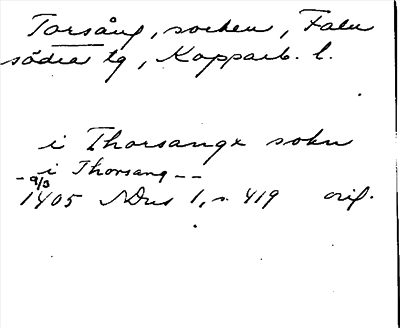 Torsång, socken, Falu
södra tg, Kopparb. l.
i Thorsangx sokn
- i Thorsang - -
9/3
1405 NDns 1, s. 419 orig.